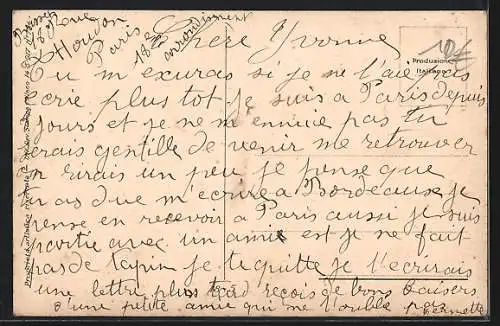 18 Rue
Houdon
Paris
18e arrondissement
Chere Yvonne
Tu m'exuras si je ne t'aie pas
ecrie plus tot je suis a Paris depuis
jours et je ne m'ennuie pas tu
crais gentille de venir me retrouver
on rirais un peu je pense que
tu as due m'ecrire a Bordeaux je
pense en recevoir a Paris aussi je suis
partie avec un amie est je ne fait
pas de tapin je te quitte je t'ecrirais
une lettre plus tard recois de bons baisers
d'une petite amie qui ne t'oublie pas
Produzione
Italiana